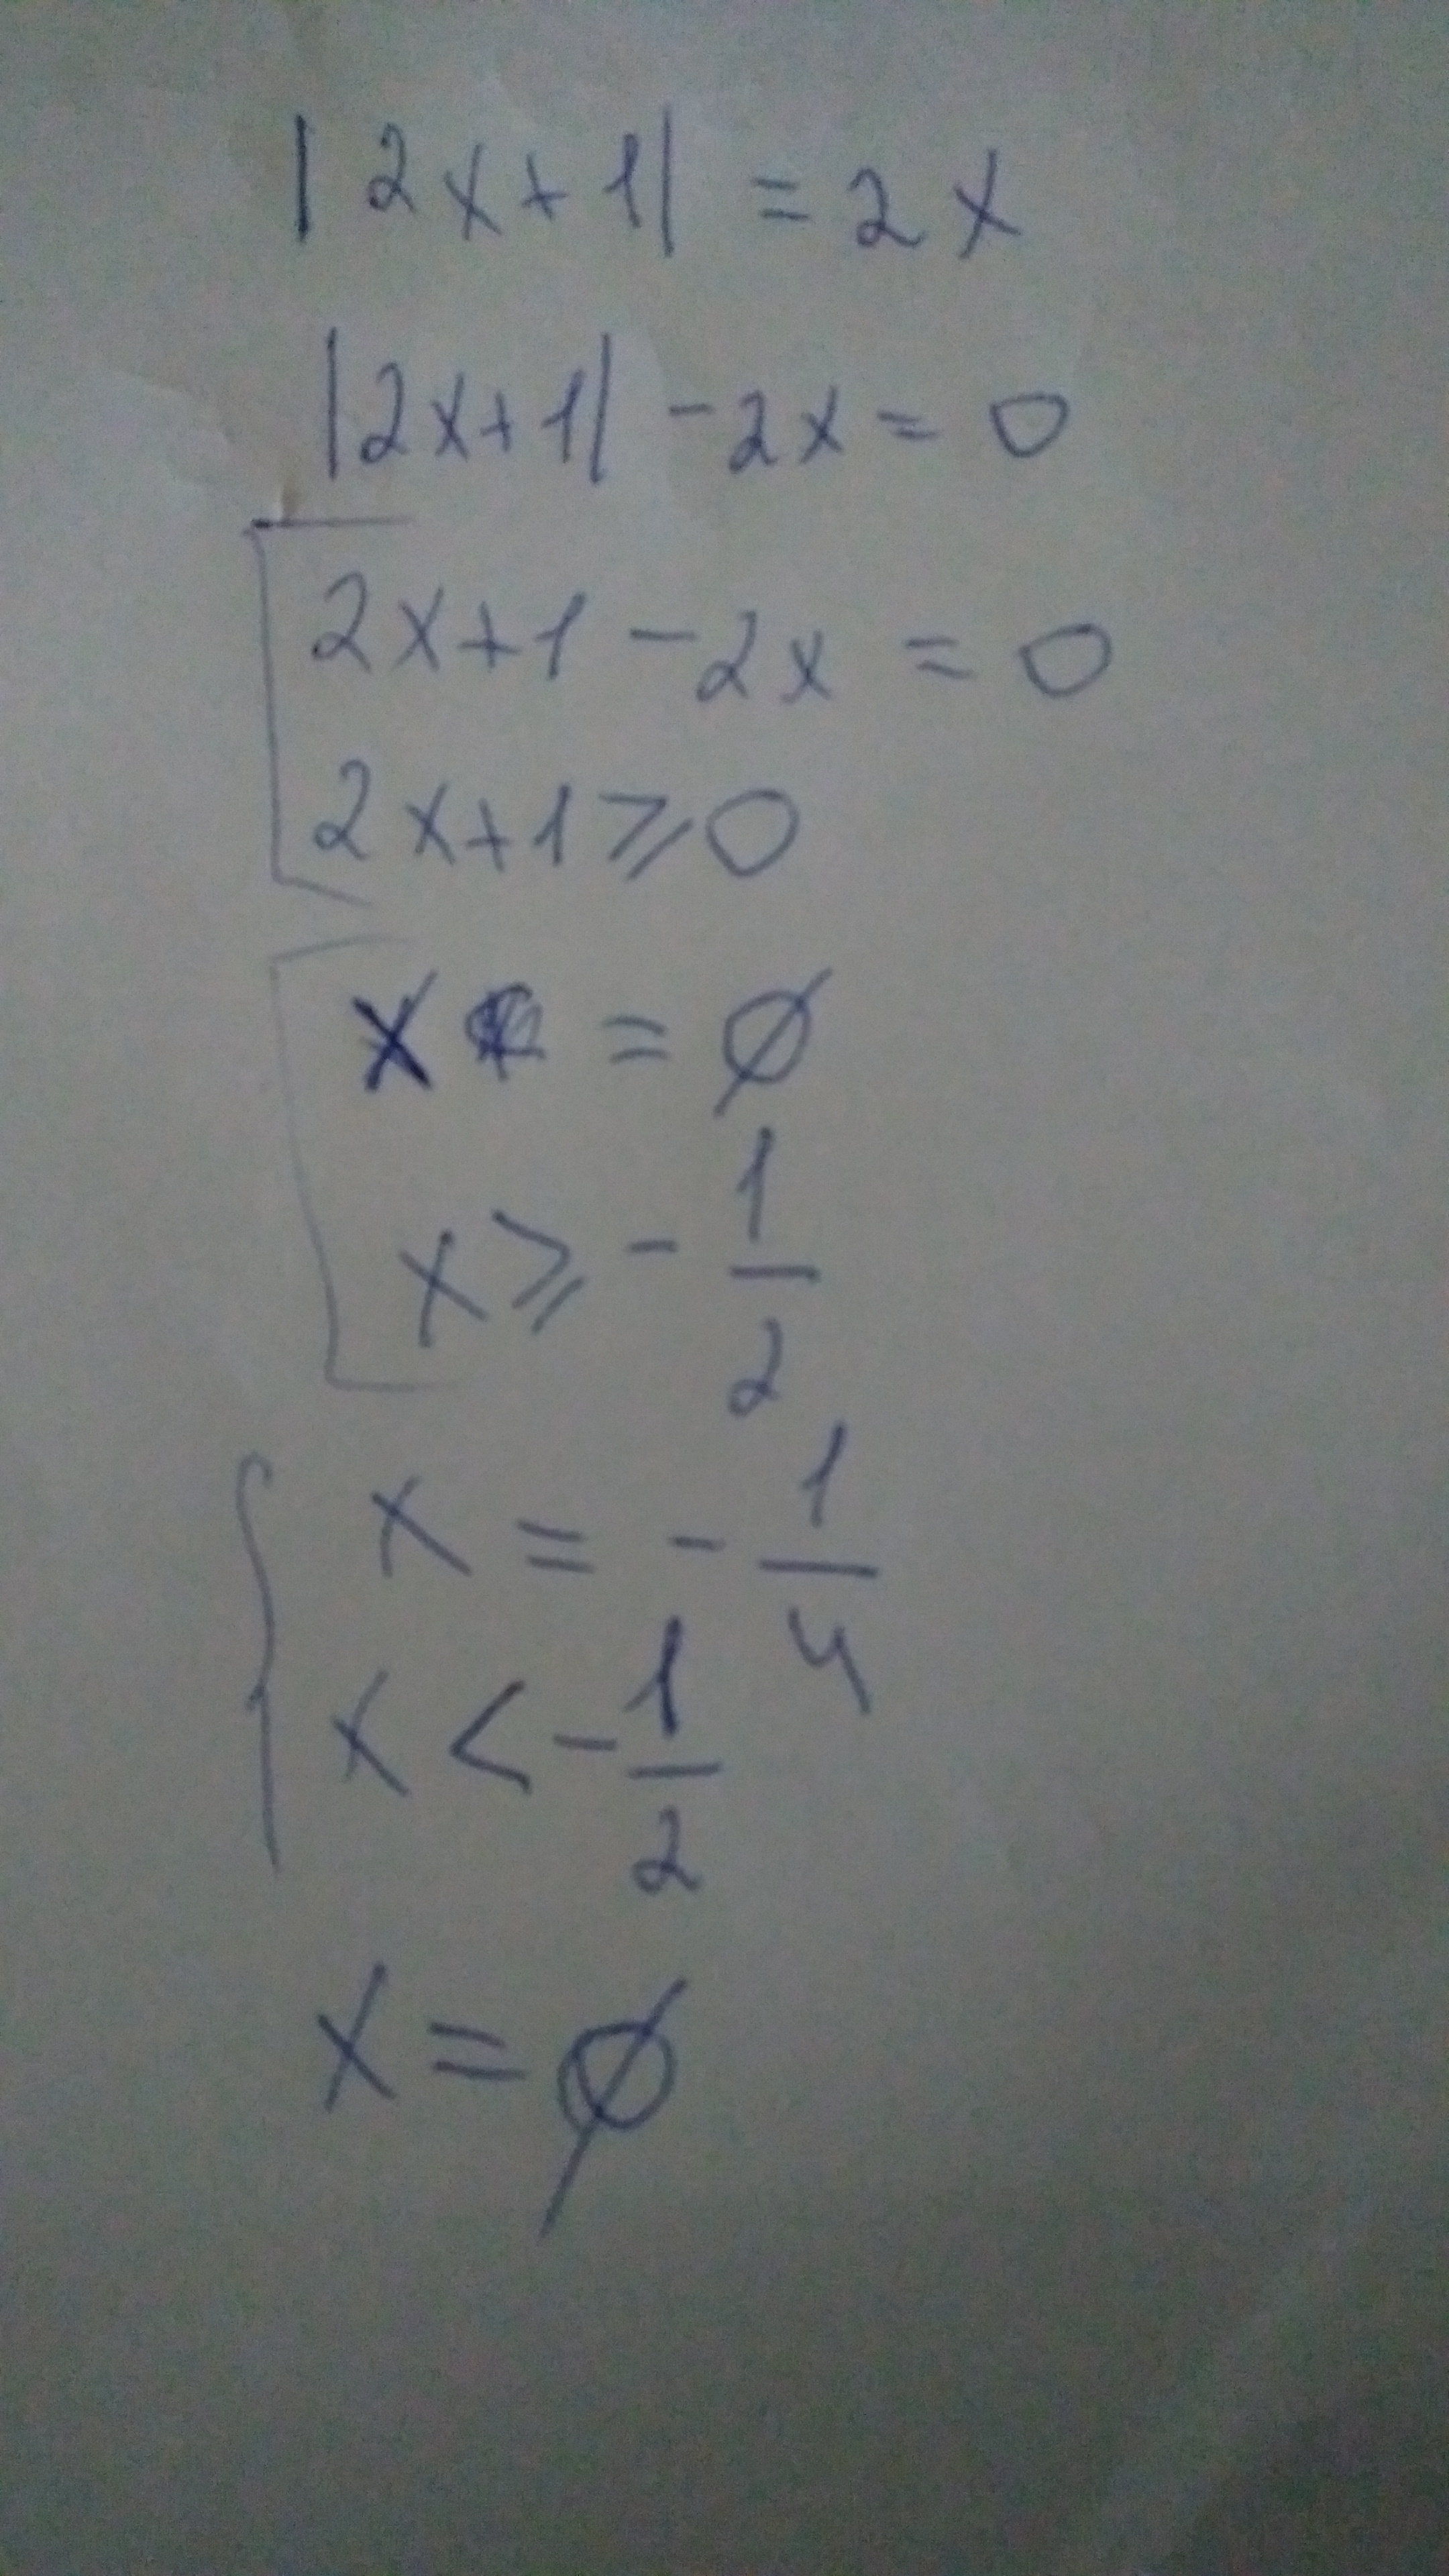 |2x+1| = 2x
|2x+1| - 2x = 0
2x+1 - 2x = 0
2x+1 ⩾ 0
x = ∅
x ⩾ - 1/2
x = - 1/4
x < - 1/2
x = ∅